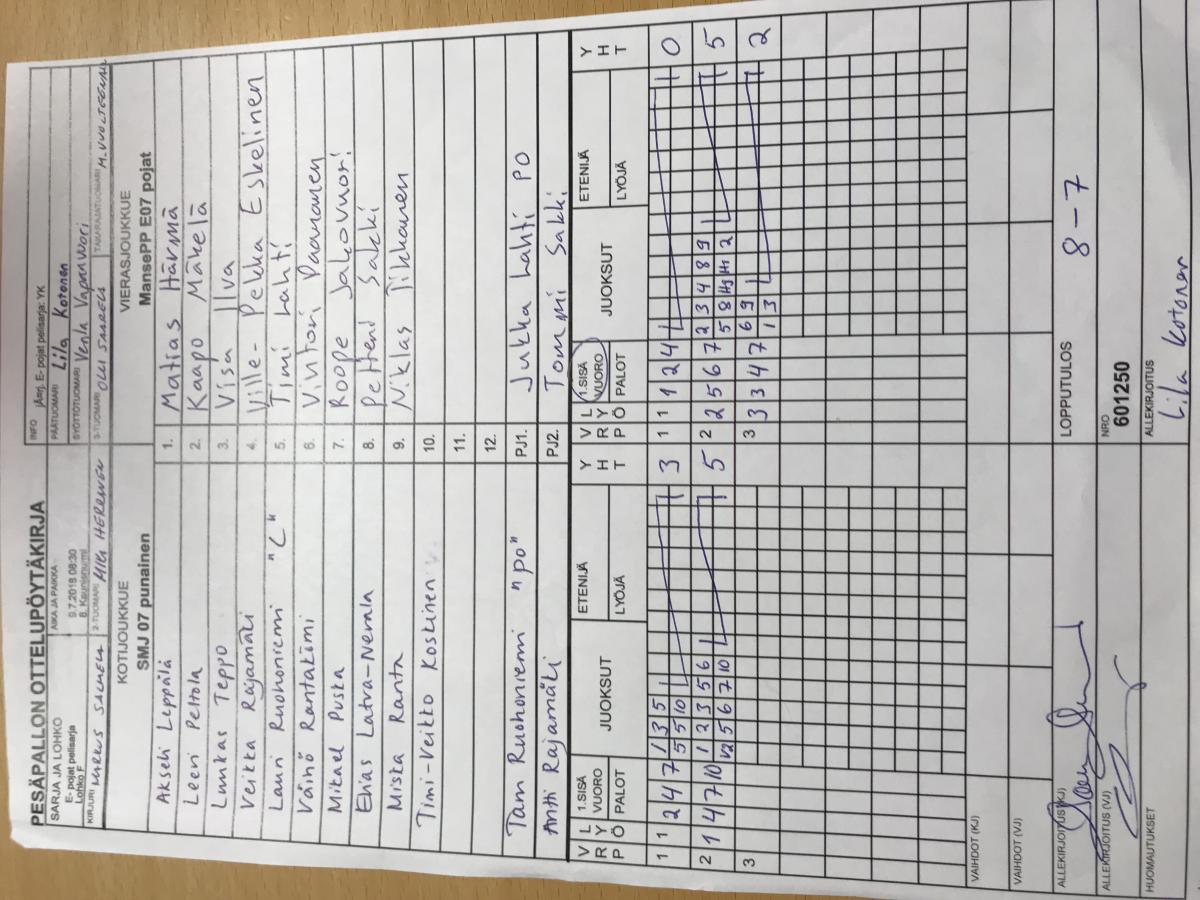 PESÄPALLON OTTELUPÖYTÄKIRJA
SARJA JA LOHKO
E- pojat pelisarja
Lohko F
AIKA JA PAIKKA
9.7.2018 08:30
8. Kaunisnurmi
INFO jÄmj. E- pojat pelisarja: YK
PÄÄTUOMARI Lila Kotonen
SYÖTTÖTUOMARI Venla Vapanvuori
KIRJURI MARKUS
2-TUOMARI
3-TUOMARI OLLI
TAKARAJATUOMARI M.
KOTIJOUKKUE
SMJ 07 punainen
VIERASJOUKKUE
MansePP E07 pojat
Akseli Leppälä
1. Matias Härmä
Leevi Peltola
2. Kaapo Mäkelä
Luukas Teppo
3. Visa Ilva
Veikka Rajamäki
4. Ville-Pekka Eskelinen
Lauri Ruohoniemi "C"
5. Timi Lahti
Väinö Rantakimi
6. Vihtori Paananen
Mikael Puska
7. Roope Salovuori
Elias Latva-Nevala
8. Petteri Sakki
Miska Ranta
9. Niklas Tikkanen
Timi-Veikko Koskinen
10.
11.
12.
Tami Ruohoniemi "PO"
PJ1. Jukka Lahti PO
Antti Rajamäki
PJ2. Tommi Sakki
V R P L Y Ö 1.SISÄ VUORO PALOT JUOKSUT ETENIJÄ LYÖJÄ Y H T
V R P L Y Ö 1.SISÄ VUORO PALOT JUOKSUT ETENIJÄ LYÖJÄ Y H T
1 1 2 4 7 1 3 5 3
5 5 10
1 1 1 2 4 0
2 1 4 7 10 1 2 3 5 6 5
V2 5 6 7 10
2 2 5 6 7 2 3 4 8 9 5
5 8 H9 H1 2
3
3 3 3 4 7 6 9 2
1 3
VAIHDOT (KJ)
VAIHDOT (VJ)
ALLEKIRJOITUS (KJ)
LOPPUTULOS 8-7
ALLEKIRJOITUS (VJ)
NRO
601250
HUOMAUTUKSET
ALLEKIRJOITUS
Lila Kotonen